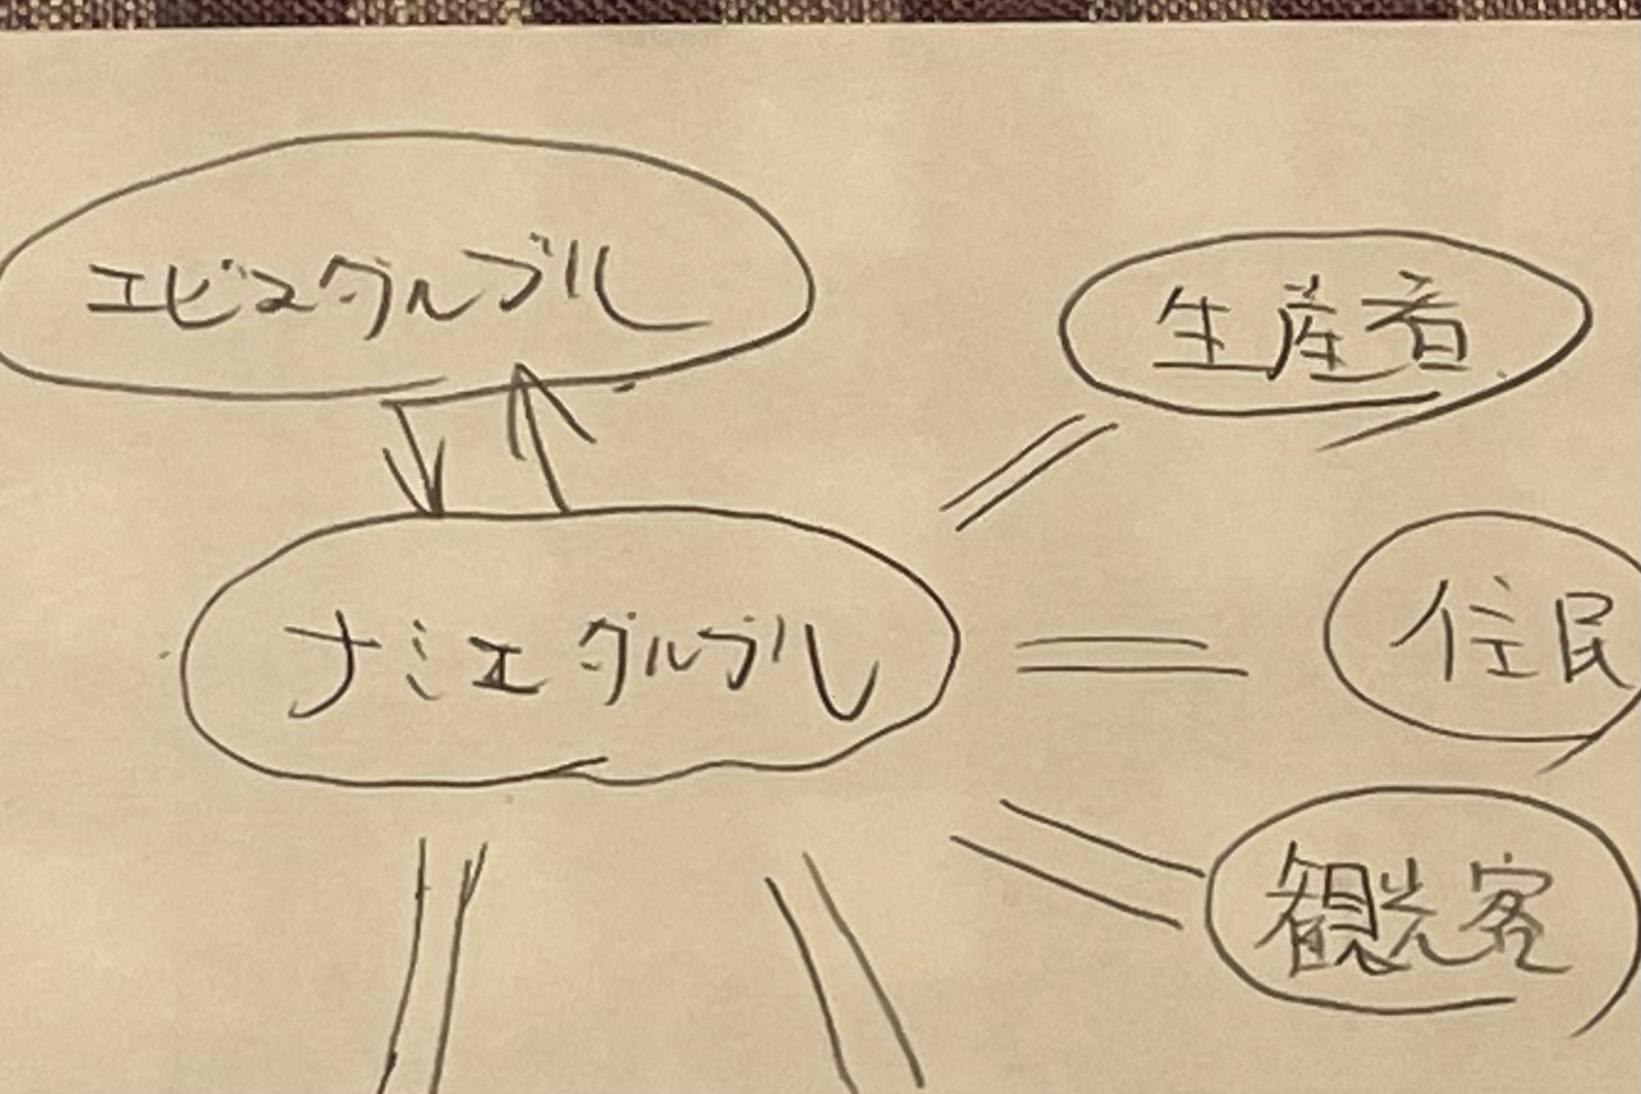 エビスグルブル
生産者
ナミエグルブル
住民
観光客